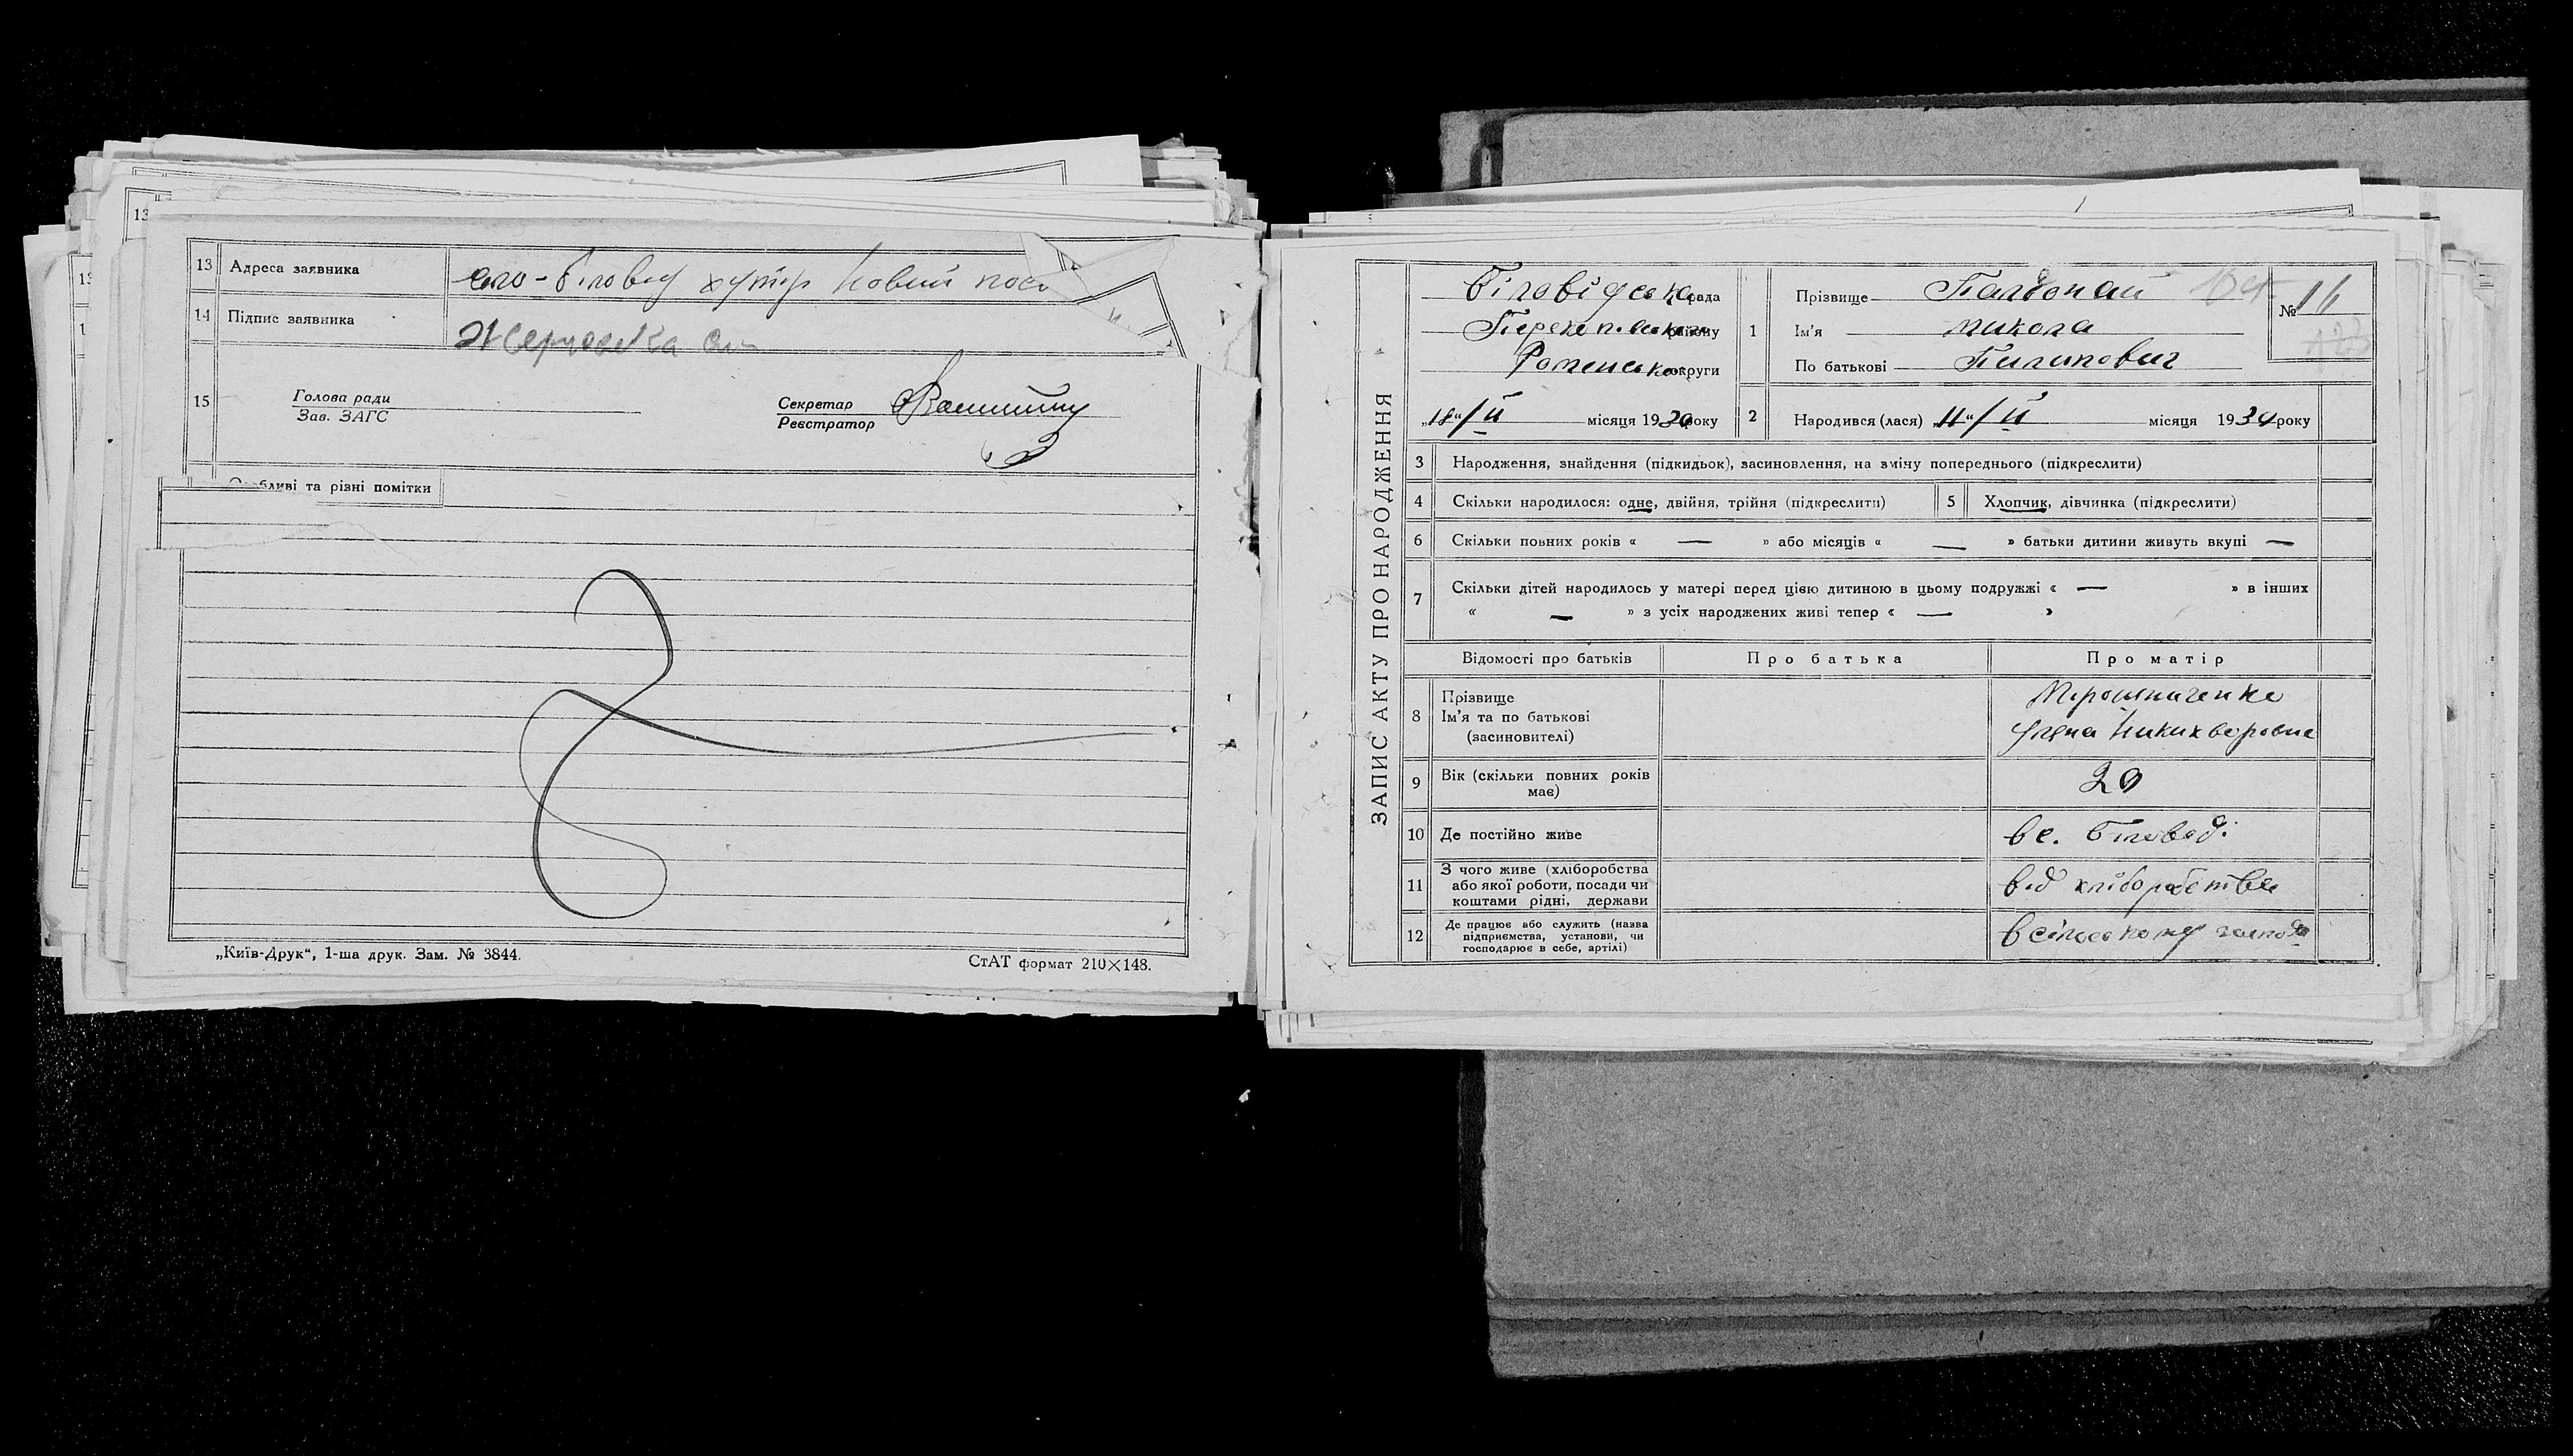 13
13 Адреса заявника село-Біловод хутір Новий
14 Підпис заявника
15 Голова ради
Зав. ЗАГС
Секретар
Реєстратор
Особливі та різні помітки
„Київ-Друк“, 1-ша друк. Зам. № 3844.
СтАТ формат 210×148.
ЗАПИС АКТУ ПРО НАРОДЖЕННЯ
Біловідська рада
Перекопівського району
Роменської округи
„18“/ІІ місяця 1930 року
1 Прізвище
Ім'я Микола
По батькові Пилипович
№ 16
2 Народився (лася) „11“/ІІ місяця 1930 року
3 Народження, знайдення (підкидьок), засиновлення, на зміну попереднього (підкреслити)
4 Скільки народилося: одне, двійня, трійня (підкреслити) 5 Хлопчик, дівчинка (підкреслити)
6 Скільки повних років « — » або місяців « — » батьки дитини живуть вкупі —
7 Скільки дітей народилось у матері перед цією дитиною в цьому подружжі « — » в інших
« — » з усіх народжених живі тепер « — »
Відомості про батьків Про батька Про матір
8 Прізвище
Ім'я та по батькові
(засиновителі)
Мірошниченко
Уляна Никихворовна
9 Вік (скільки повних років
має)
20
10 Де постійно живе в с. Біловоді
11 З чого живе (хліборобства
або якої роботи, посади чи
коштами рідні, держави
від хліборобства
12 Де працює або служить (назва
підприємства, установи, чи
господарює в себе, артілі)
в сільському